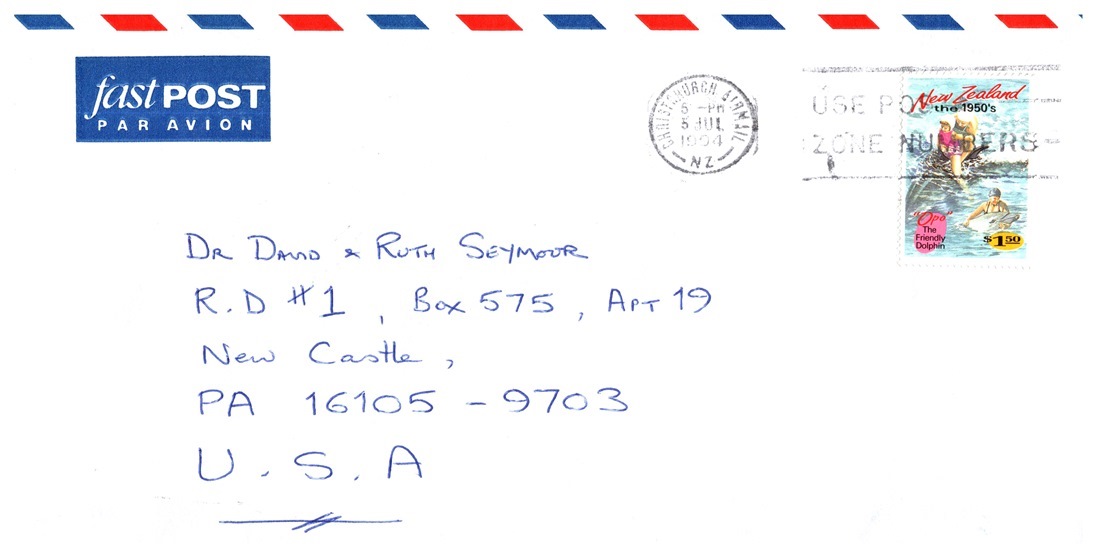 fastPOST
PAR AVION
CHRISTCHURCH AIRMAIL
6 -PM
5 JUL
1994
NZ
USE PO
ZONE NUMBERS
New Zealand
the 1950's
"Opo"
The
Friendly
Dolphin
$1.50
DR DAVID & RUTH SEYMOUR
R.D #1, Box 575, APT 19
New Castle,
PA 16105 - 9703
U.S.A